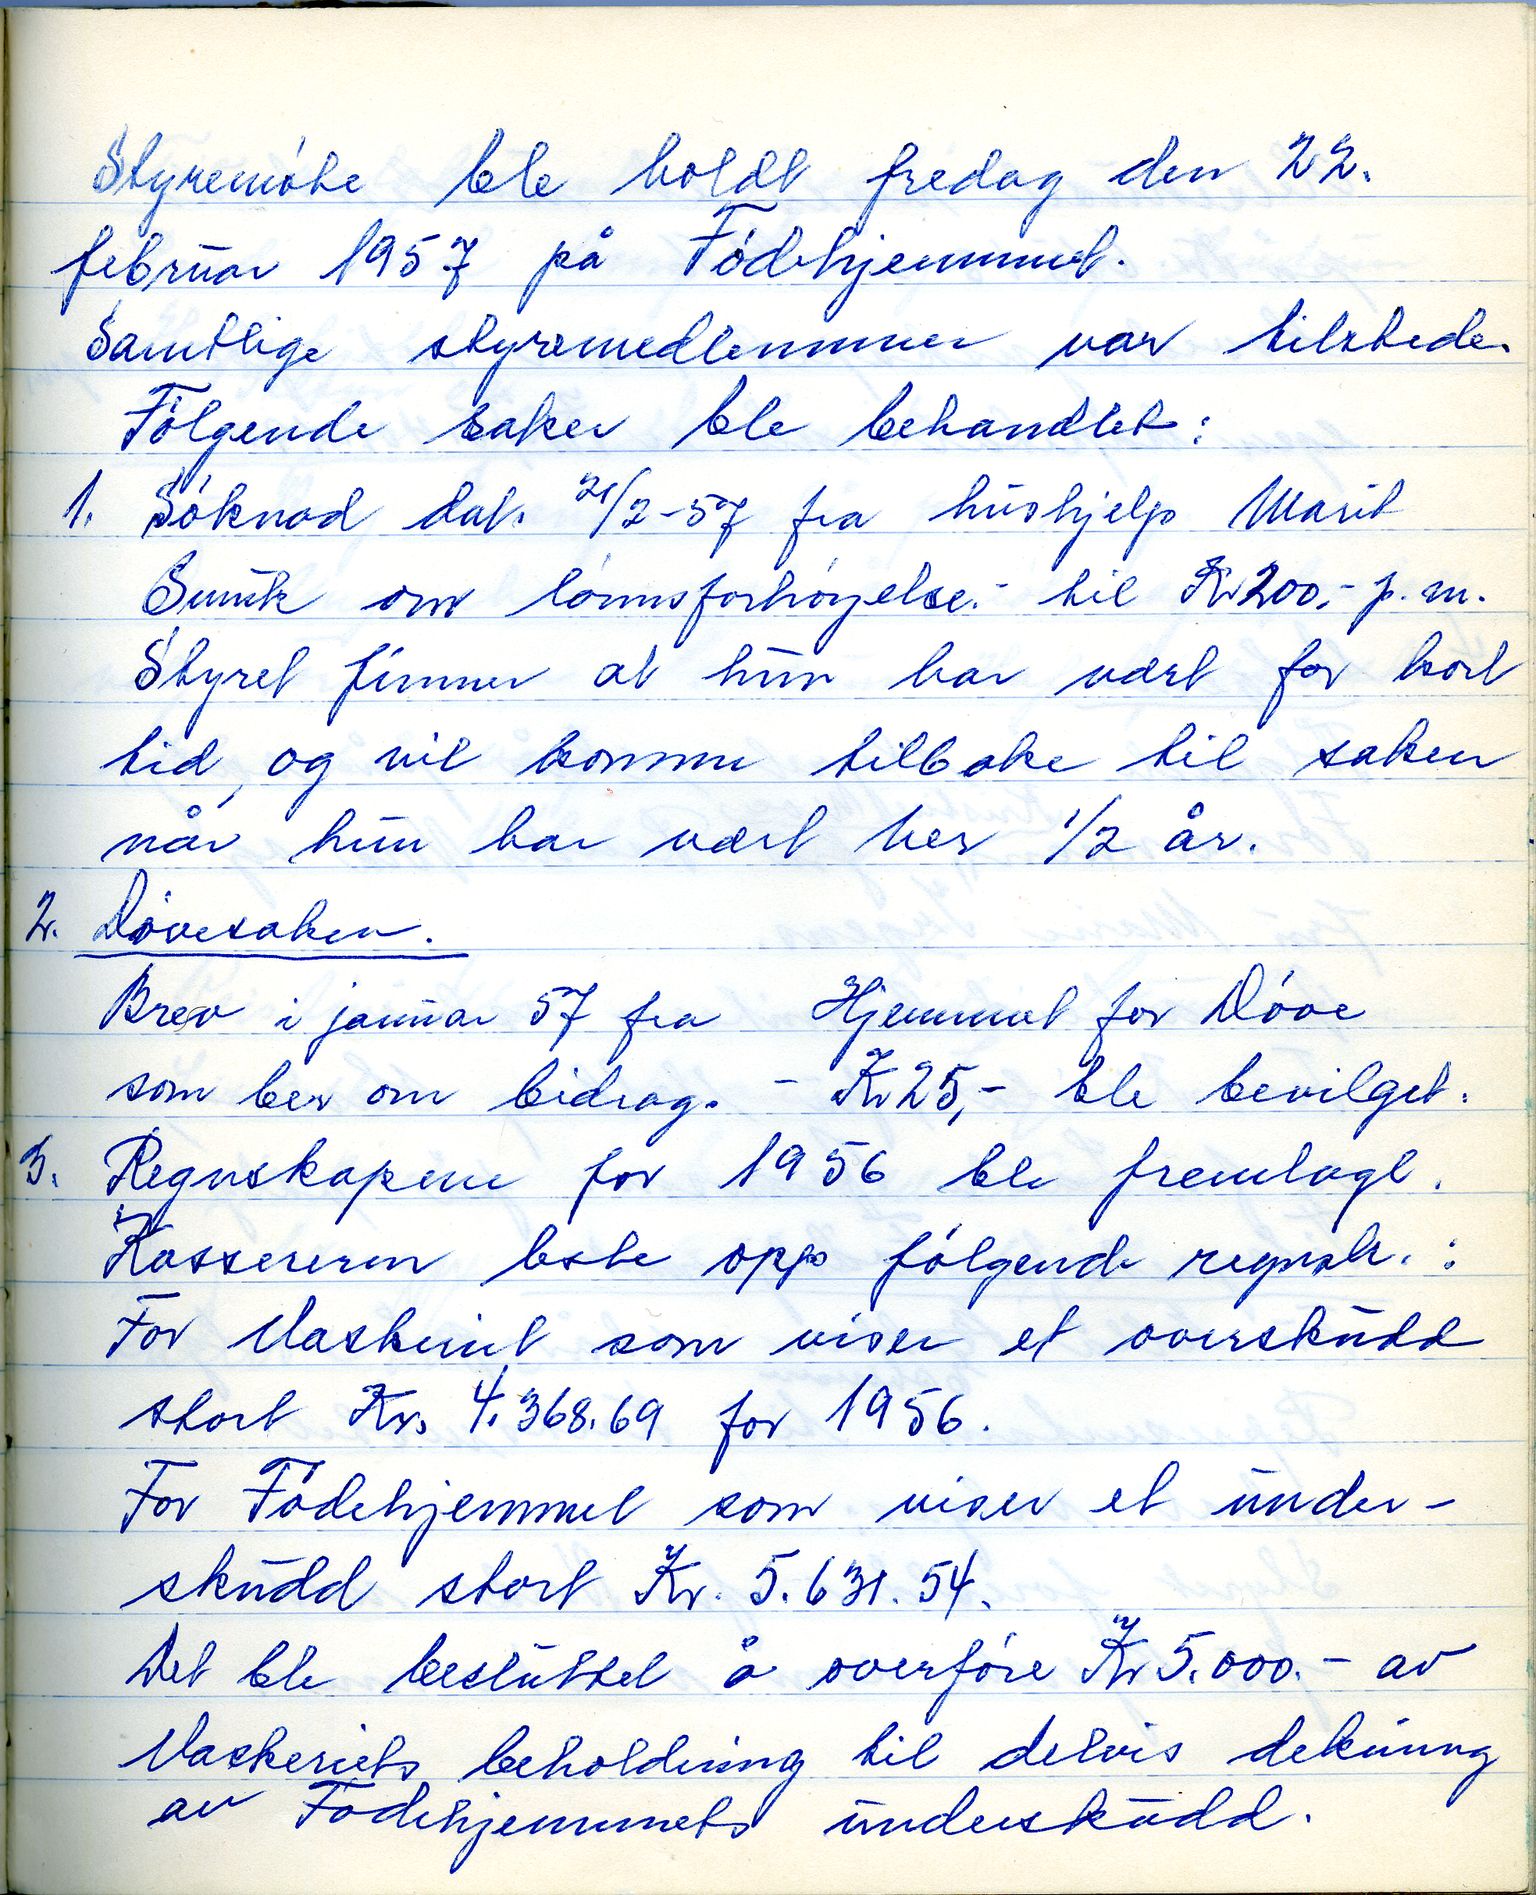 Styremøte ble holdt fredag den 22.
februar 1957 på Fødehjemmet.
Samtlige styremedlemmer var tilstede.
Følgende saker ble behandlet:
1. Søknad dat. 21/2-57 fra hushjelp Marit
om lønnsforhøyelse.- til Kr 200,- p.m.
Styret finner at hun har vært for kort
tid, og vil komme tilbake til saken
når hun har vært her 1/2 år.
2. Døvesaken.
Brev i januar 57 fra Hjemmet for Døve
som ber om bidrag. - Kr 25,- ble bevilget.
3. Regnskapene for 1956 ble fremlagt.
Kassereren leste opp følgende regnsk. :
For Vaskeriet som viser et overskudd
stort Kr. 4.368.69 for 1956.
For Fødehjemmet som viser et under-
skudd stort Kr. 5.631.54.
Det ble besluttet å overføre Kr 5.000.- av
Vaskeriets beholdning til delvis dekning
av Fødehjemmets underskudd.